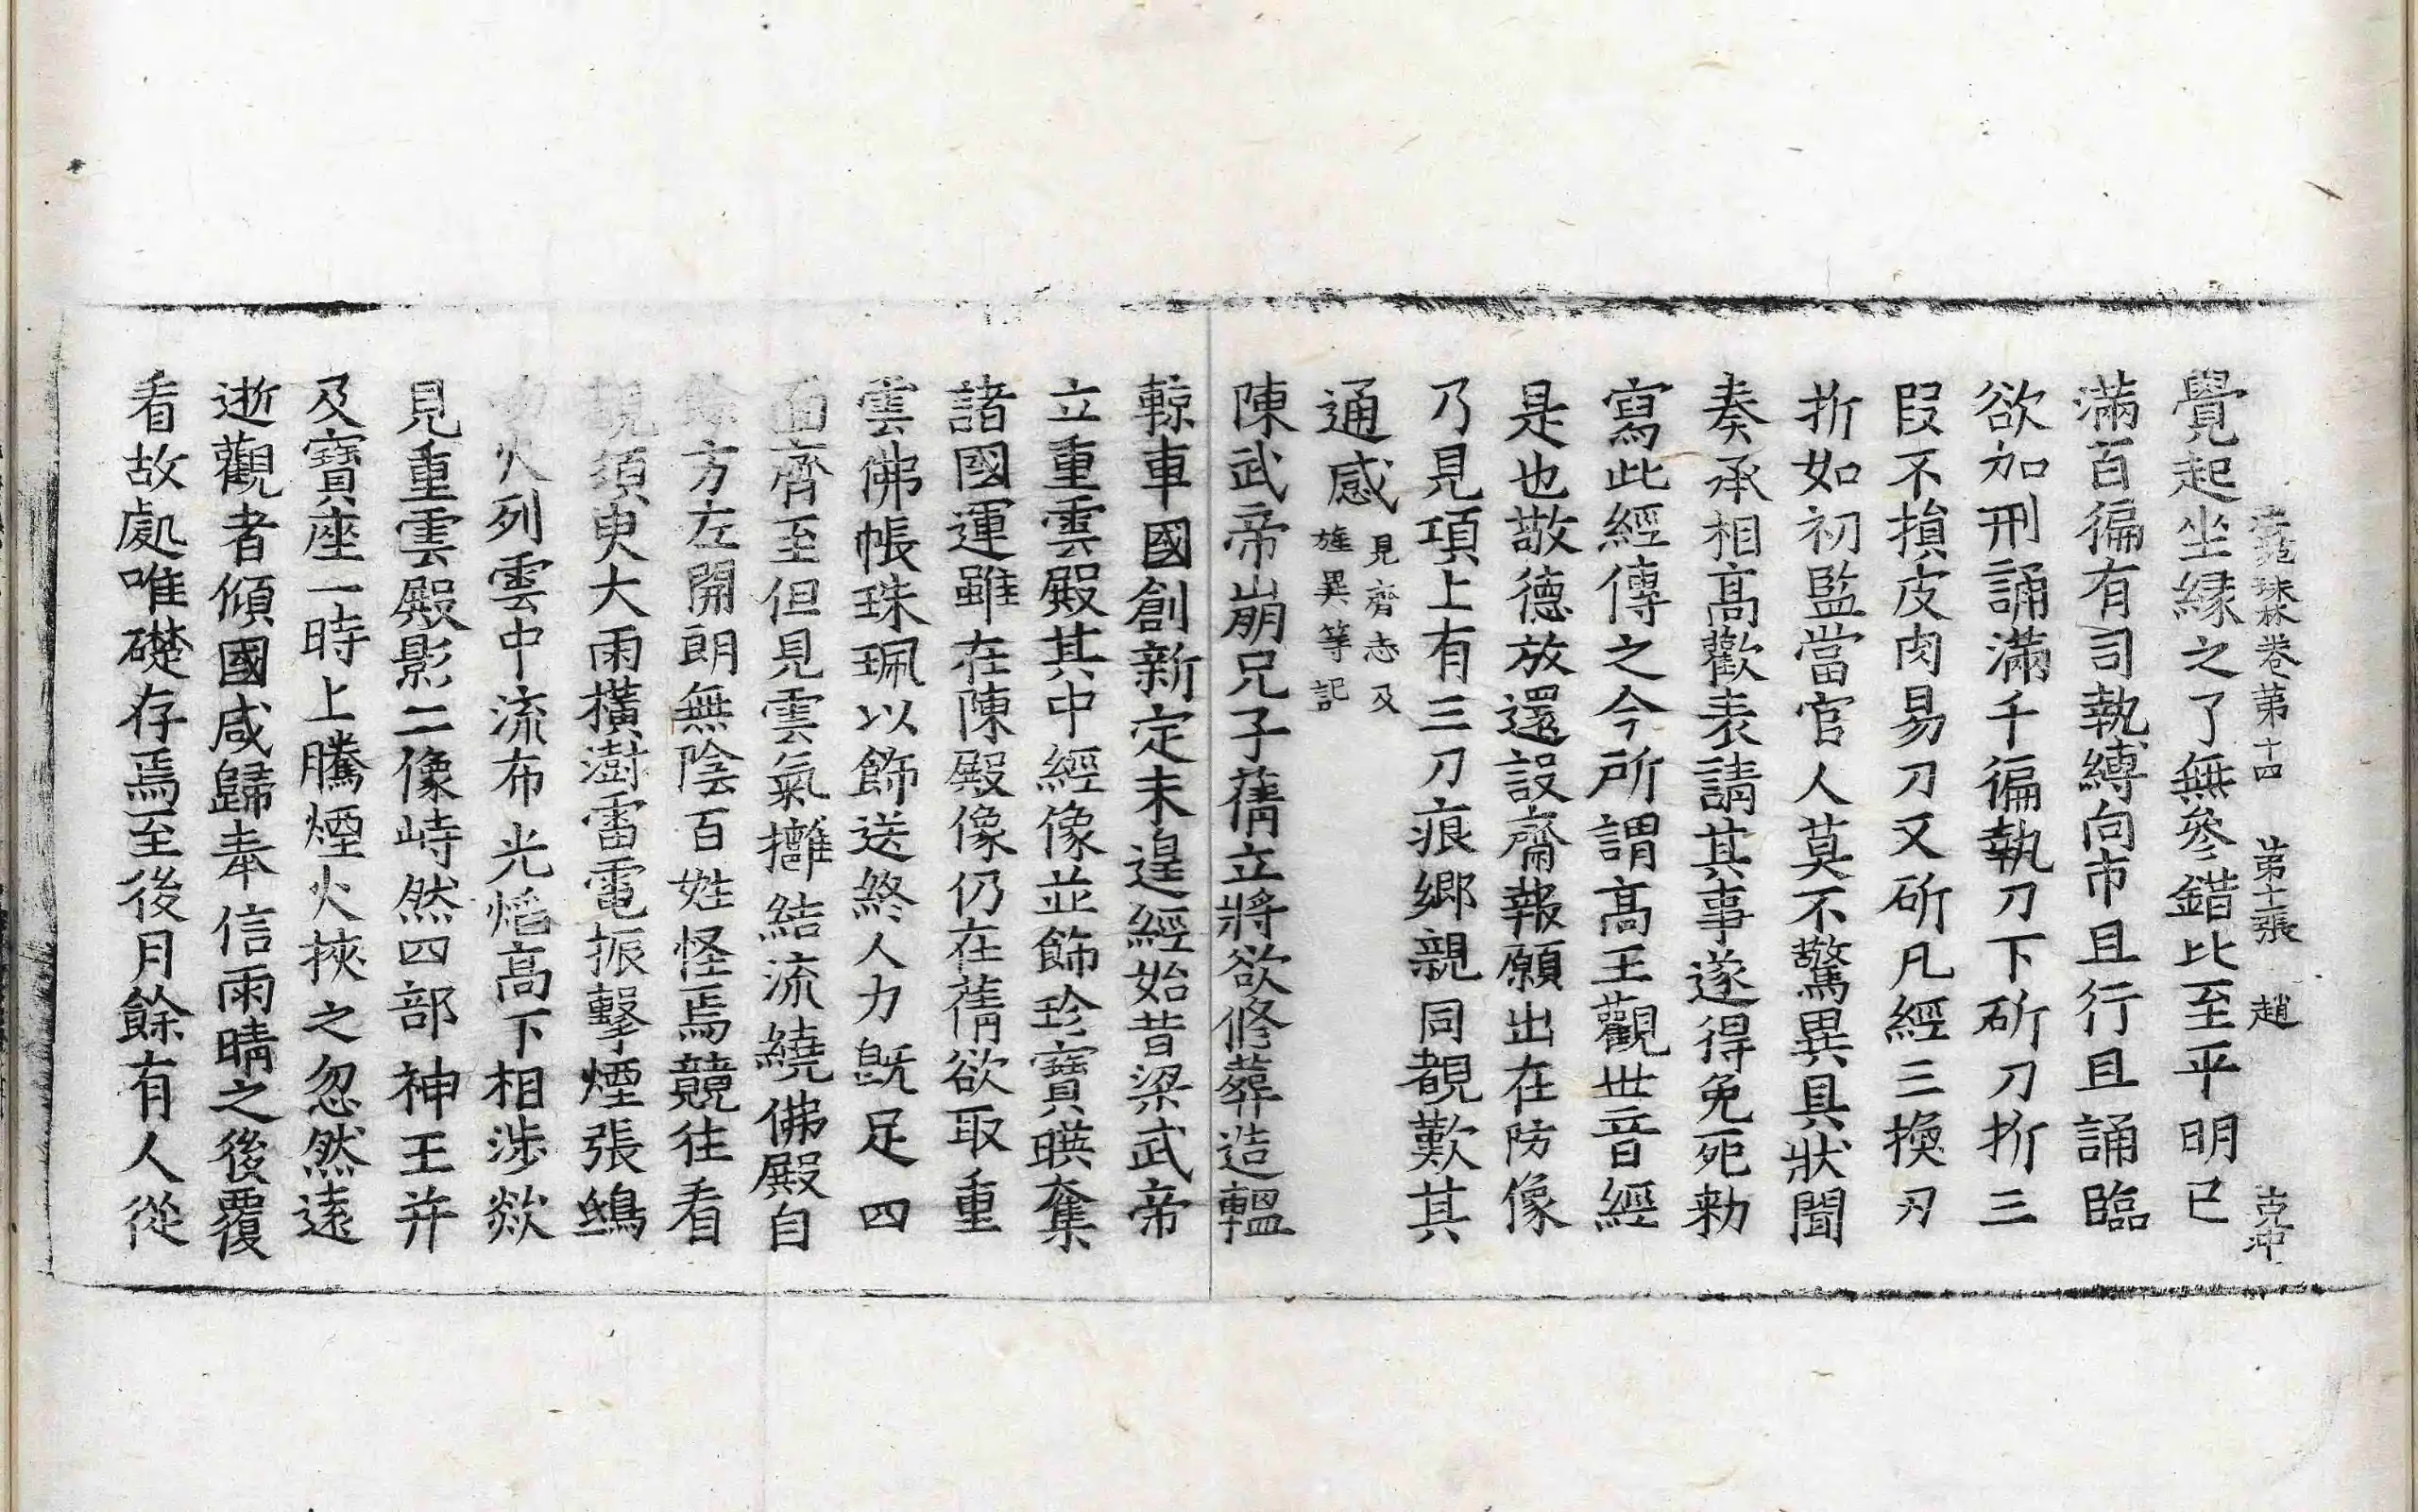 法苑珠林卷第十四 第十張 趙 克冲
覺起坐緣之了無參錯比至平明已
滿百徧有司執縛向市且行且誦臨
欲加刑誦滿千徧執刀下斫刀折三
段不損皮肉易刀又斫凡經三換刃
折如初監當官人莫不驚異具狀聞
奏承相高歡表請其事遂得免死勑
寫此經傳之今所謂高王觀世音經
是也敬德放還設齋報願出在防像
乃見項上有三刀痕鄉親同覩歎其
通感見齊志及旌異等記
陳武帝崩兄子蒨立將欲修葬造轀
輬車國創新定未遑經始昔梁武帝
立重雲殿其中經像並飾珍寶暎奪
諸國運雖在陳殿像仍在蒨欲取重
雲佛帳珠珮以飾送終人力既足四
面齊至但見雲氣擁結流繞佛殿自
餘方左開朗無陰百姓怪焉競往看
覩須臾大雨橫澍雷電振擊煙張鴟
吻火列雲中流布光焰高下相涉欻
見重雲殿影二像峙然四部神王并
及寶座一時上騰煙火挾之忽然遠
逝觀者傾國咸歸奉信雨晴之後覆
看故處唯礎存焉至後月餘有人從